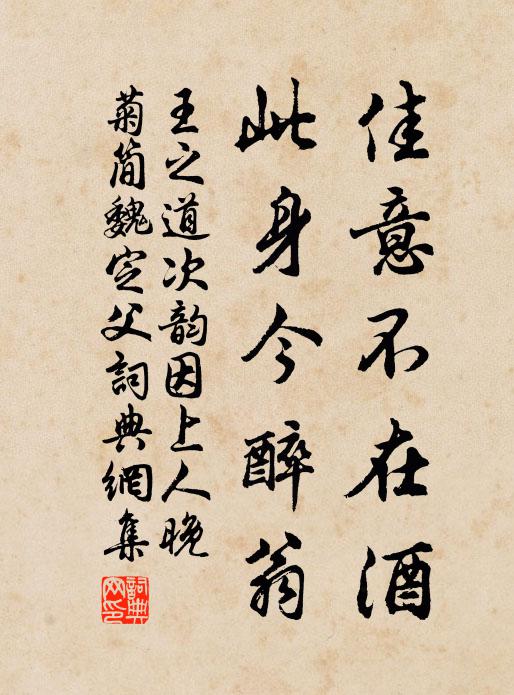 佳意不在酒
此身今醉翁
王之道次韵因上人晚
菊简魏定父詞典網集
詞典网印